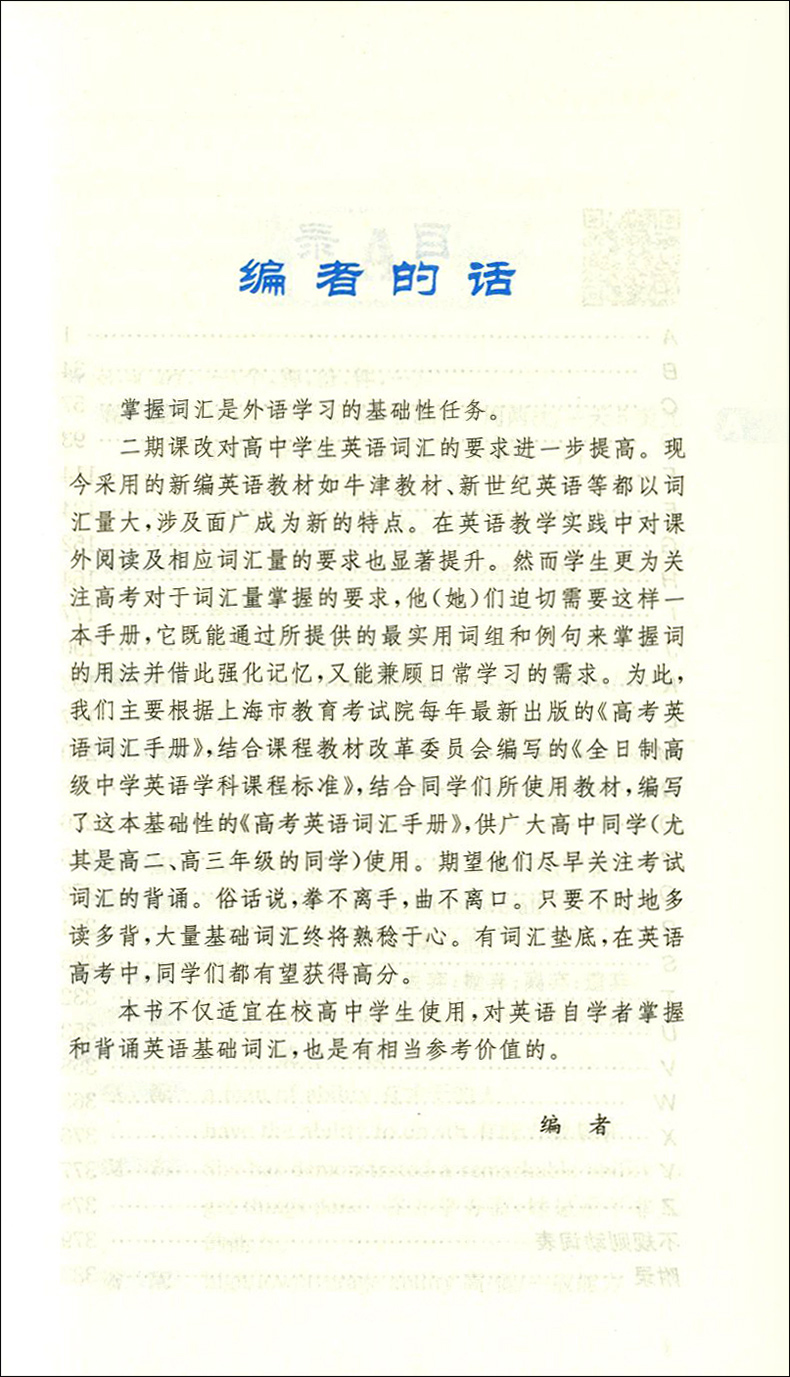 编者的话
掌握词汇是外语学习的基础性任务。
二期课改对高中学生英语词汇的要求进一步提高。现
今采用的新编英语教材如牛津教材、新世纪英语等都以词
汇量大,涉及面广成为新的特点。在英语教学实践中对课
外阅读及相应词汇量的要求也显著提升。然而学生更为关
注高考对于词汇量掌握的要求,他(她)们迫切需要这样一
本手册,它既能通过所提供的最实用词组和例句来掌握词
的用法并借此强化记忆,又能兼顾日常学习的需求。为此,
我们主要根据上海市教育考试院每年最新出版的《高考英
语词汇手册》,结合课程教材改革委员会编写的《全日制高
级中学英语学科课程标准》,结合同学们所使用教材,编写
了这本基础性的《高考英语词汇手册》,供广大高中同学(尤
其是高二、高三年级的同学)使用。期望他们尽早关注考试
词汇的背诵。俗话说,拳不离手,曲不离口。只要不时地多
读多背,大量基础词汇终将熟稔于心。有词汇垫底,在英语
高考中,同学们都有望获得高分。
本书不仅适宜在校高中学生使用,对英语自学者掌握
和背诵英语基础词汇,也是有相当参考价值的。
编 者